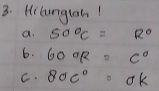 3. Hitunglah !
a. 50°C = R°
b. 60°R = C°
c. 80C° = °K